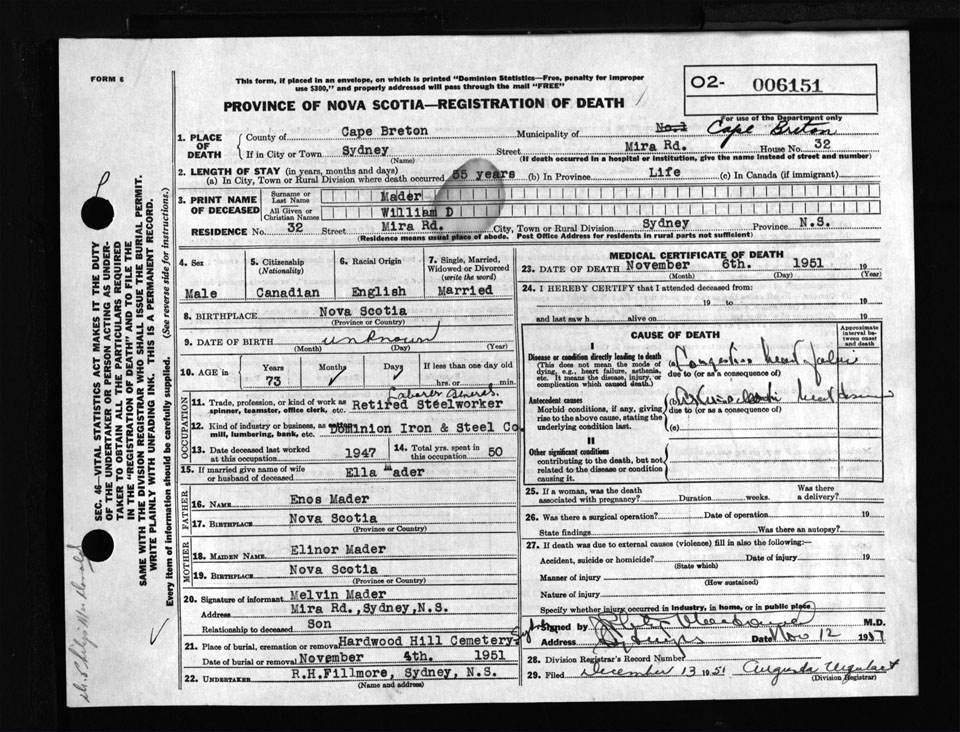 FORM 6
This form, if placed in an envelope, on which is printed "Dominion Statistics—Free, penalty for improper
use $300," and properly addressed will pass through the mail "FREE"
O2- 006151
For use of the Department only
PROVINCE OF NOVA SCOTIA—REGISTRATION OF DEATH
1. PLACE OF DEATH
County of Cape Breton Municipality of No.1 Cape Breton
If in City or Town Sydney Street Mira Rd. House No. 32
(Name) (If death occurred in a hospital or institution, give the name instead of street and number)
2. LENGTH OF STAY (in years, months and days)
(a) In City, Town or Rural Division where death occurred 55 years (b) In Province Life (c) In Canada (if immigrant)
3. PRINT NAME OF DECEASED
Surname or Last Name Mader
All Given or Christian Names William D
RESIDENCE No. 32 Street Mira Rd. City, Town or Rural Division Sydney Province N.S.
(Residence means usual place of abode. Post Office Address for residents in rural parts not sufficient)
4. Sex Male
5. Citizenship (Nationality) Canadian
6. Racial Origin English
7. Single, Married, Widowed or Divorced (write the word) Married
8. BIRTHPLACE Nova Scotia
(Province or Country)
9. DATE OF BIRTH unknown
(Month) (Day) (Year)
10. AGE in Years 73 Months Days If less than one day old hrs. or min.
OCCUPATION
11. Trade, profession, or kind of work as spinner, teamster, office clerk, etc. Retired Steelworker
Laborer General
12. Kind of industry or business, as cotton mill, lumbering, bank, etc. Dominion Iron & Steel Co.
13. Date deceased last worked at this occupation 1947 14. Total yrs. spent in this occupation 50
15. If married give name of wife or husband of deceased Ella Mader
FATHER
16. NAME Enos Mader
17. BIRTHPLACE Nova Scotia
(Province or Country)
MOTHER
18. MAIDEN NAME Elinor Mader
19. BIRTHPLACE Nova Scotia
(Province or Country)
20. Signature of informant Melvin Mader
Address Mira Rd., Sydney, N.S.
Relationship to deceased Son
21. Place of burial, cremation or removal Hardwood Hill Cemetery Sydney
Date of burial or removal November 4th. 1951
22. UNDERTAKER R.H.Fillmore, Sydney, N.S.
(Name and address)
MEDICAL CERTIFICATE OF DEATH
23. DATE OF DEATH November 6th. 1951 19
(Month) (Day) (Year)
24. I HEREBY CERTIFY that I attended deceased from:
19 to 19
and last saw h alive on 19
CAUSE OF DEATH
Approximate interval between onset and death
I
Disease or condition directly leading to death (a) Congestive heart failure
(This does not mean the mode of dying, e.g., heart failure, asthenia, etc. It means the disease, injury, or complication which caused death.)
due to (or as a consequence of)
Antecedent causes
Morbid conditions, if any, giving rise to the above cause, stating the underlying condition last.
(b) heart disease
due to (or as a consequence of)
(c)
II
Other significant conditions
contributing to the death, but not related to the disease or condition causing it.
25. If a woman, was the death associated with pregnancy? Duration weeks. Was there a delivery?
26. Was there a surgical operation? Date of operation 19
State findings Was there an autopsy?
27. If death was due to external causes (violence) fill in also the following:—
Accident, suicide or homicide? Date of injury 19
(State which)
Manner of injury
(How sustained)
Nature of injury
Specify whether injury occurred in industry, in home, or in public place
Signed by M.D.
Address Date Nov 12 19
28. Division Registrar's Record Number
29. Filed December 13 1951 Augusta Urquhart
(Division Registrar)
SEC. 46—VITAL STATISTICS ACT MAKES IT THE DUTY
OF THE UNDERTAKER OR PERSON ACTING AS UNDER-
TAKER TO OBTAIN ALL THE PARTICULARS REQUIRED
IN THE "REGISTRATION OF DEATH" AND TO FILE THE
SAME WITH THE DIVISION REGISTRAR WHO SHALL ISSUE THE BURIAL PERMIT.
WRITE PLAINLY WITH UNFADING INK. THIS IS A PERMANENT RECORD.
Every item of information should be carefully supplied. (See reverse side for instructions.)